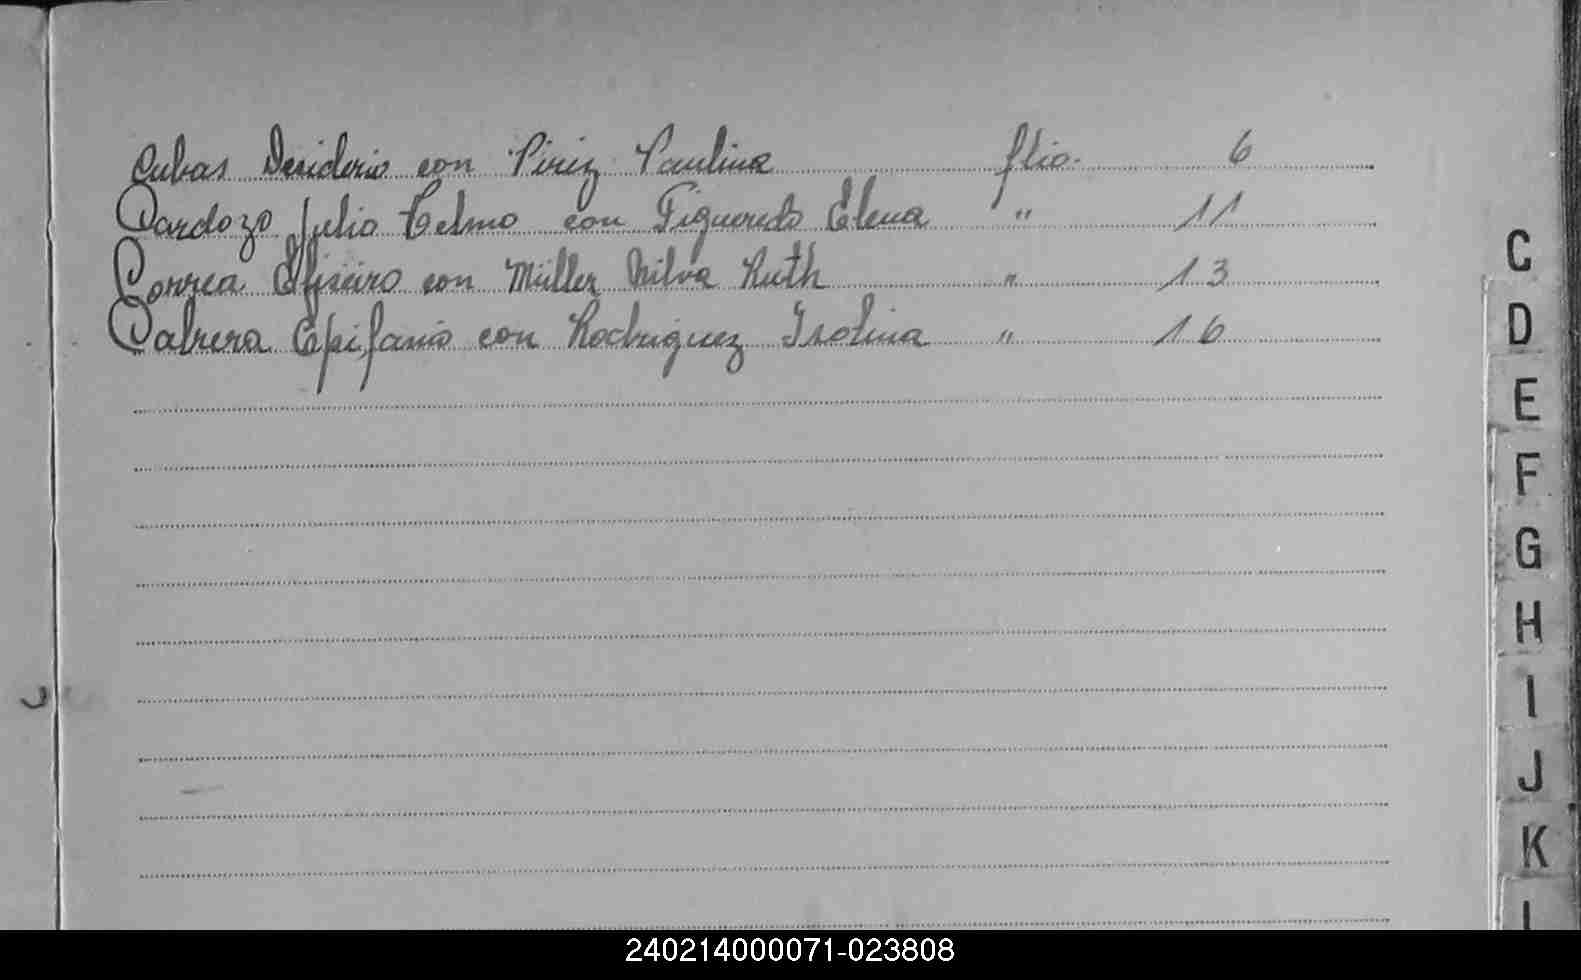 Cubas Desiderio con Piriz Paulina flio. 6
Cardozo Julio Celmo con Figueredo Elena " 11
Correa Eliseiro con Müller Nilva Ruth " 13
Cabrera Epifanio con Rodriguez Isolina " 16
C
D
E
F
G
H
I
J
K
L
240214000071-023808